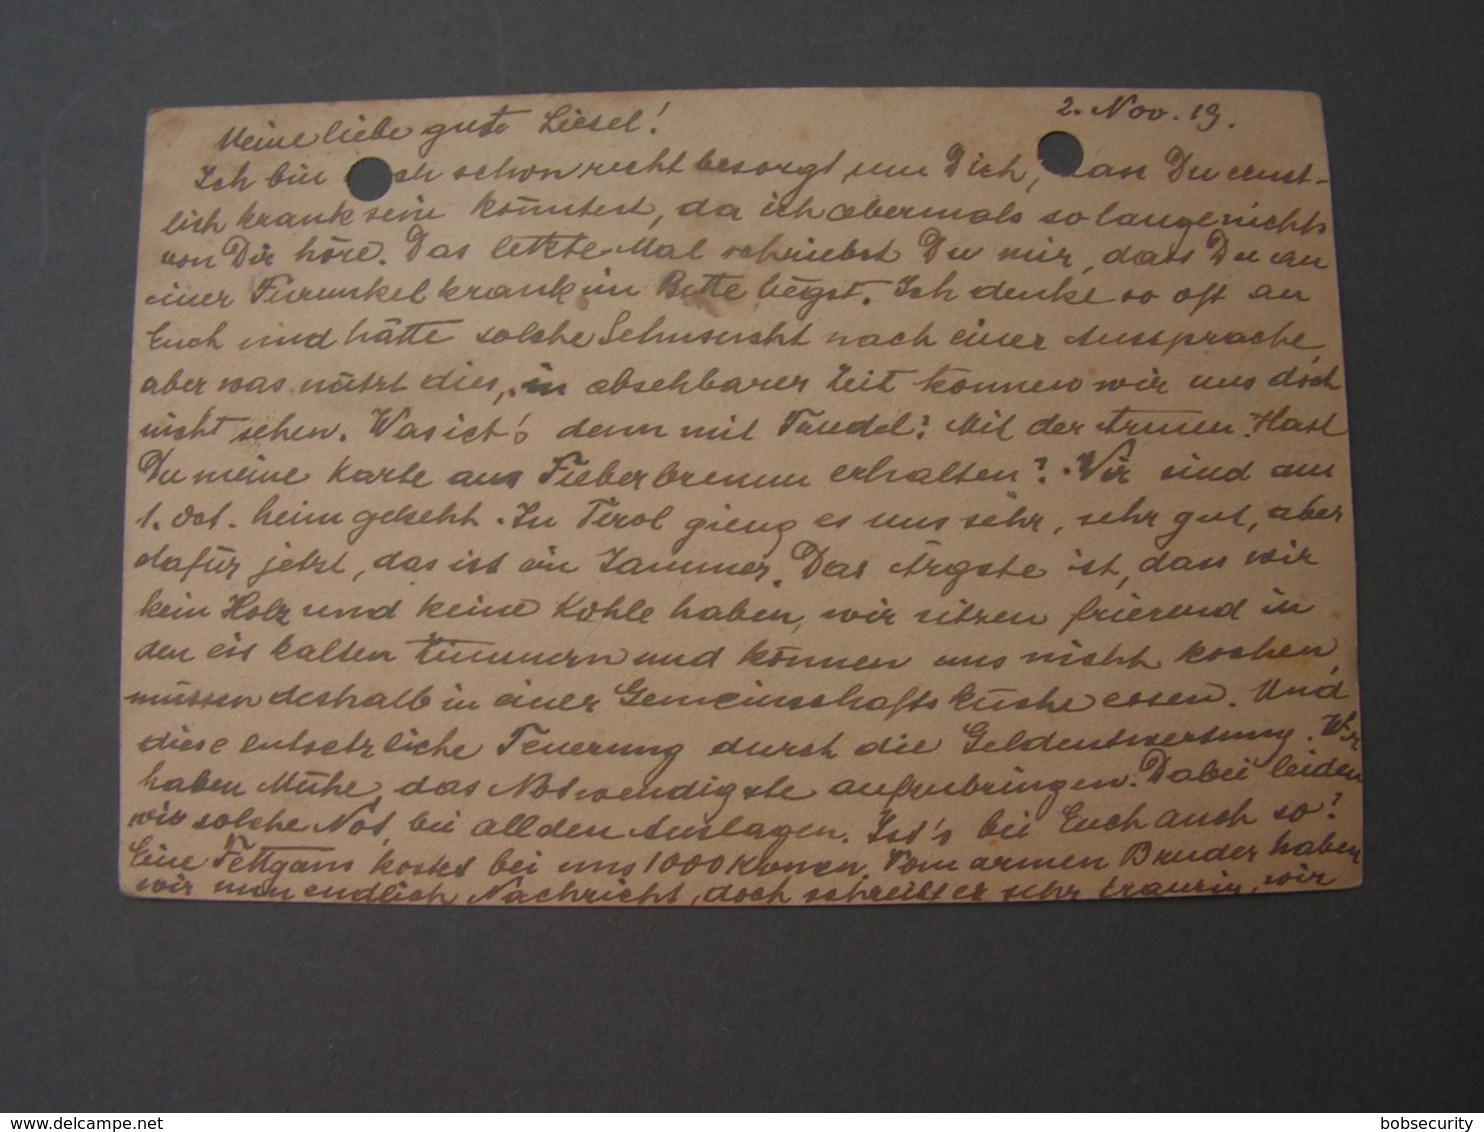 2. Nov. 19.
Meine liebe gute Liesel!
Ich bin schon recht besorgt um Dich, dass Du ernst-
lich krank sein könntest, da ich abermals so lange nichts
von Dir höre. Das letzte Mal schriebst Du mir, dass Du an
einer Furunkel krank im Bette liegst. Ich denke so oft an
Euch und hätte solche Sehnsucht nach einer Aussprache,
aber was nützt dies, in absehbarer Zeit können wir uns doch
nicht sehen. Was ist's denn mit ? Mit der Armen. Hast
Du meine Karte aus Fieberbrunn erhalten? Wir sind am
1. Oct. heimgekehrt. In Tirol gieng es uns sehr, sehr gut, aber
dafür jetzt, das ist ein Jammer. Das Ärgste ist, dass wir
kein Holz und keine Kohle haben, wir sitzen frierend in
den eis kalten Zimmern und können uns nicht kochen,
müssen deshalb in einer Gemeinschaftsküche essen. Und
diese entsetzliche Teuerung durch die Geldentwertung. Wir
haben Mühe, das Notwendigste aufzubringen. Dabei leiden
wir solche Not, bei all den Auslagen. Ist's bei Euch auch so?
Eine Fettgans kostet bei uns 1000 Kronen. Vom armen Bruder haben
wir nun endlich Nachricht, doch schreibt er sehr traurig, wir
bobsecurity